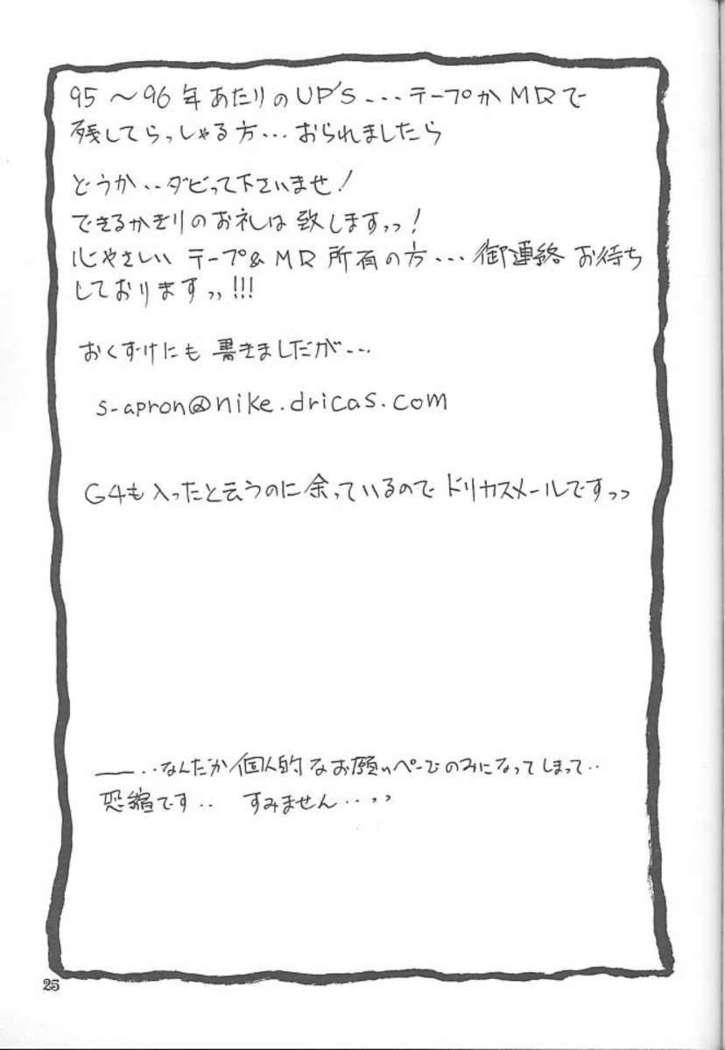 95〜96年あたりのUP'S---テープかMDで
残してらっしゃる方…おられましたら
どうか‥ダビって下さいませ!
できるかぎりのお礼は致しますっっ!
心やさしい テープ&MD所有の方…御連絡お待ち
しておりますっっ!!!
おくずけにも書きましたが---
s-apron@nike.dricas.com
G4も入ったと云うのに余っているので ドリカスメールですっっ
――‥なんだか個人的なお願いぺーじのみになってしまって‥
恐縮です‥ すみません‥っっ
25